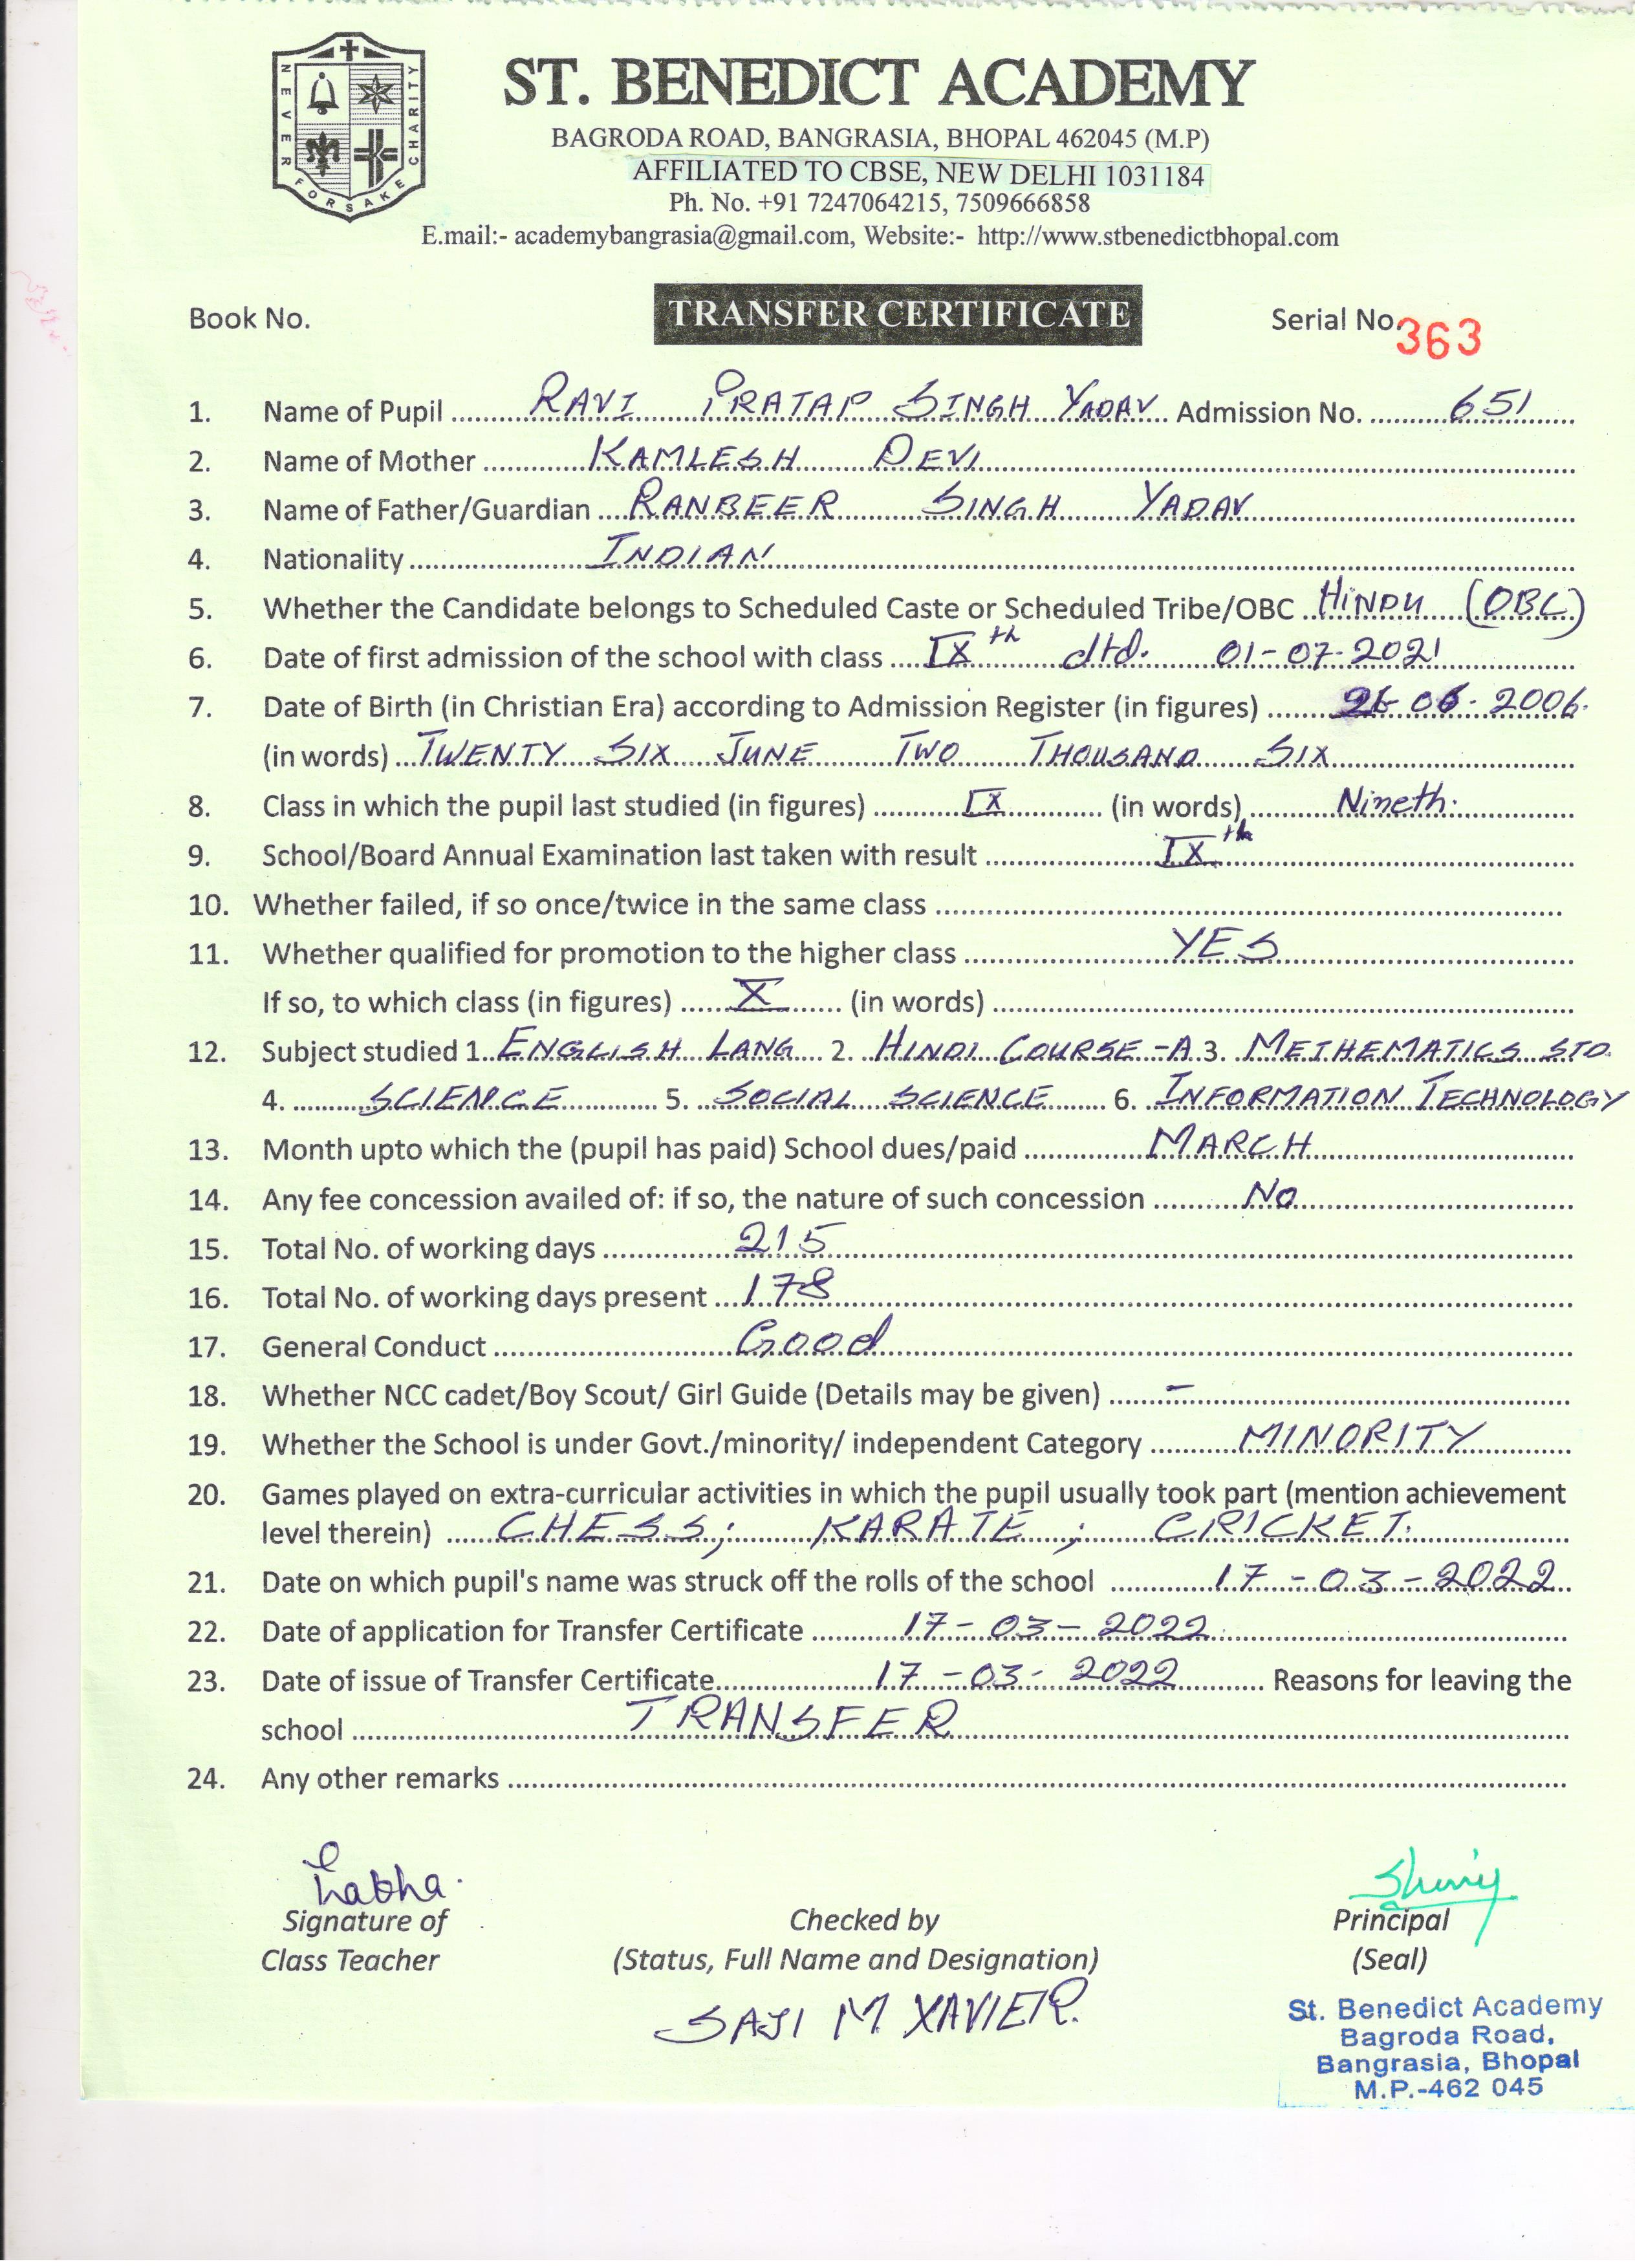 NEVER FORSAKE CHARITY
ST. BENEDICT ACADEMY
BAGRODA ROAD, BANGRASIA, BHOPAL 462045 (M.P)
AFFILIATED TO CBSE, NEW DELHI 1031184
Ph. No. +91 7247064215, 7509666858
E.mail:- academybangrasia@gmail.com, Website:- http://www.stbenedictbhopal.com
Book No. TRANSFER CERTIFICATE Serial No. 363
1. Name of Pupil RAVI PRATAP SINGH YADAV Admission No. 651
2. Name of Mother KAMLESH DEVI
3. Name of Father/Guardian RANBEER SINGH YADAV
4. Nationality INDIAN
5. Whether the Candidate belongs to Scheduled Caste or Scheduled Tribe/OBC HINDU (OBC)
6. Date of first admission of the school with class IXth dtd. 01-07-2021
7. Date of Birth (in Christian Era) according to Admission Register (in figures) 26-06-2006.
(in words) TWENTY SIX JUNE TWO THOUSAND SIX
8. Class in which the pupil last studied (in figures) IX (in words) Nineth.
9. School/Board Annual Examination last taken with result IXth
10. Whether failed, if so once/twice in the same class
11. Whether qualified for promotion to the higher class YES
If so, to which class (in figures) X (in words)
12. Subject studied 1. ENGLISH LANG 2. HINDI COURSE-A 3. METHEMATICS STD.
4. SCIENCE 5. SOCIAL SCIENCE 6. INFORMATION TECHNOLOGY
13. Month upto which the (pupil has paid) School dues/paid MARCH
14. Any fee concession availed of: if so, the nature of such concession No
15. Total No. of working days 215
16. Total No. of working days present 178
17. General Conduct Good
18. Whether NCC cadet/Boy Scout/ Girl Guide (Details may be given) -
19. Whether the School is under Govt./minority/ independent Category MINORITY
20. Games played on extra-curricular activities in which the pupil usually took part (mention achievement
level therein) CHESS; KARATE; CRICKET.
21. Date on which pupil's name was struck off the rolls of the school 17-03-2022
22. Date of application for Transfer Certificate 17-03-2022
23. Date of issue of Transfer Certificate 17-03-2022 Reasons for leaving the
school TRANSFER
24. Any other remarks
Signature of Checked by Principal
Class Teacher (Status, Full Name and Designation) (Seal)
SAJI M XAVIER.
St. Benedict Academy
Bagroda Road,
Bangrasia, Bhopal
M.P.-462 045